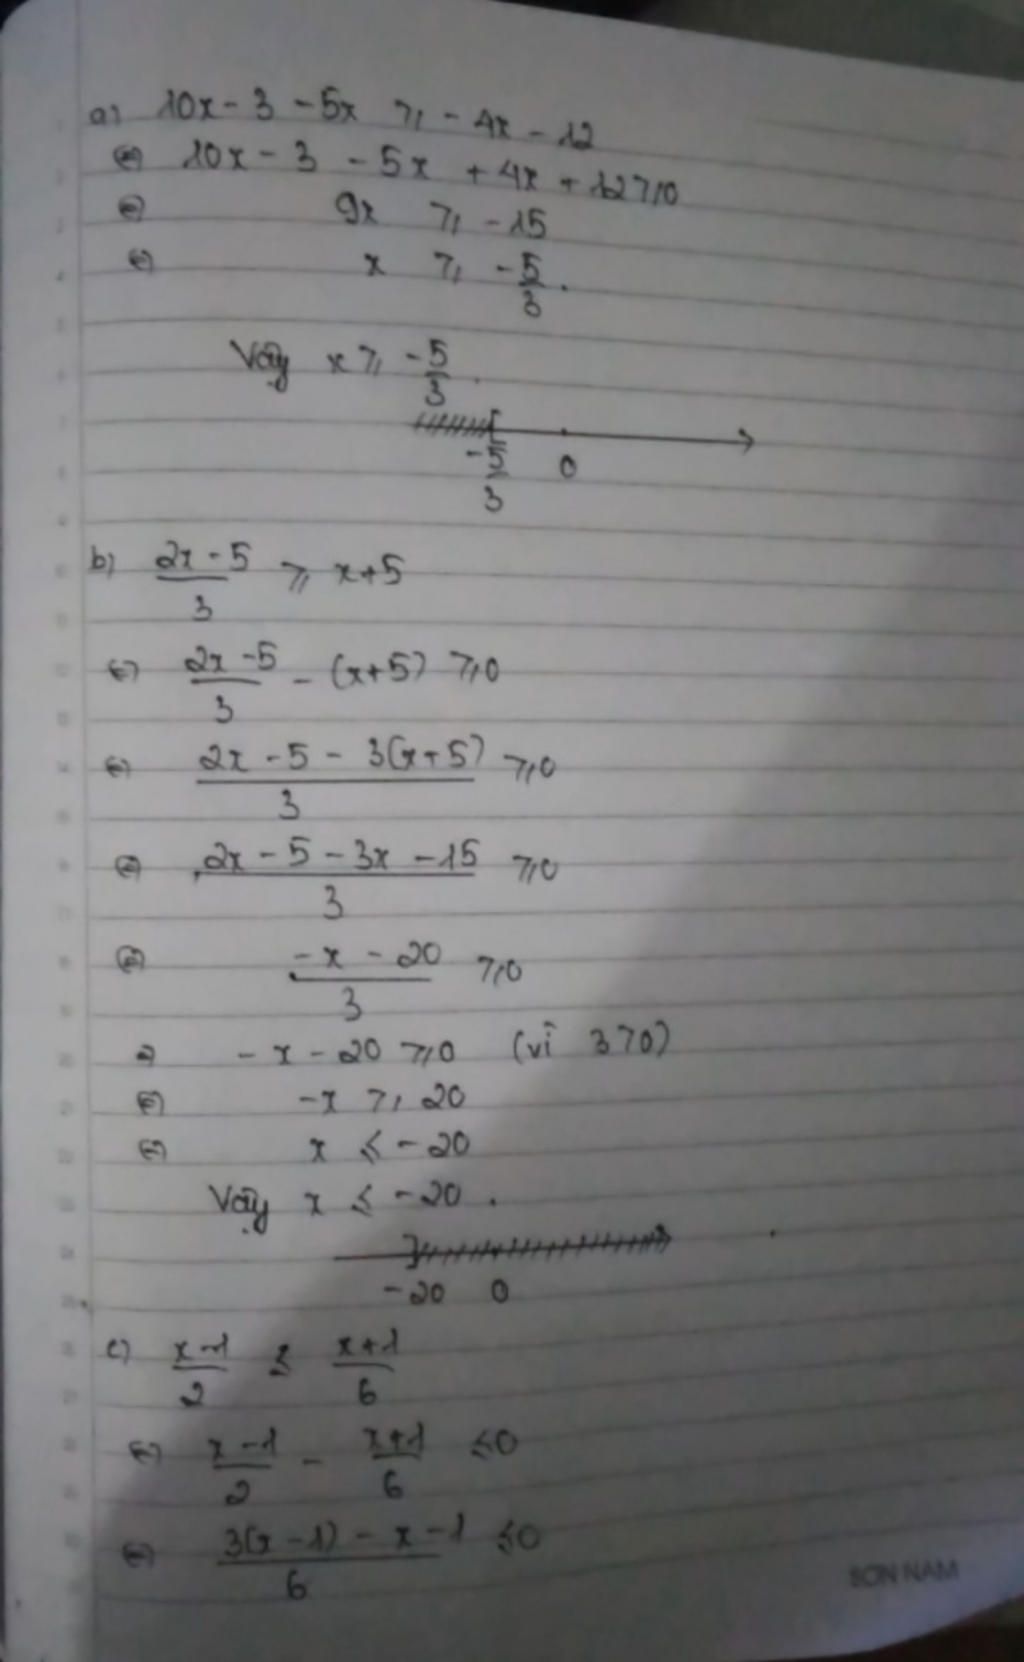 a) 10x - 3 - 5x ≥ - 4x - 12
⇔ 10x - 3 - 5x + 4x + 12 ≥ 0
⇔ 9x ≥ - 15
⇔ x ≥ -5/3.
Vậy x ≥ -5/3.
-5/3 0
b) (2x - 5)/3 ≥ x + 5
⇔ (2x - 5)/3 - (x + 5) ≥ 0
⇔ (2x - 5 - 3(x + 5))/3 ≥ 0
⇔ (2x - 5 - 3x - 15)/3 ≥ 0
⇔ (-x - 20)/3 ≥ 0
⇒ - x - 20 ≥ 0 (vì 3 > 0)
⇔ -x ≥ 20
⇔ x ≤ - 20
Vậy x ≤ - 20.
-20 0
c) (x - 1)/2 ≤ (x + 1)/6
⇔ (x - 1)/2 - (x + 1)/6 ≤ 0
⇔ (3(x - 1) - x - 1)/6 ≤ 0
SON NAM